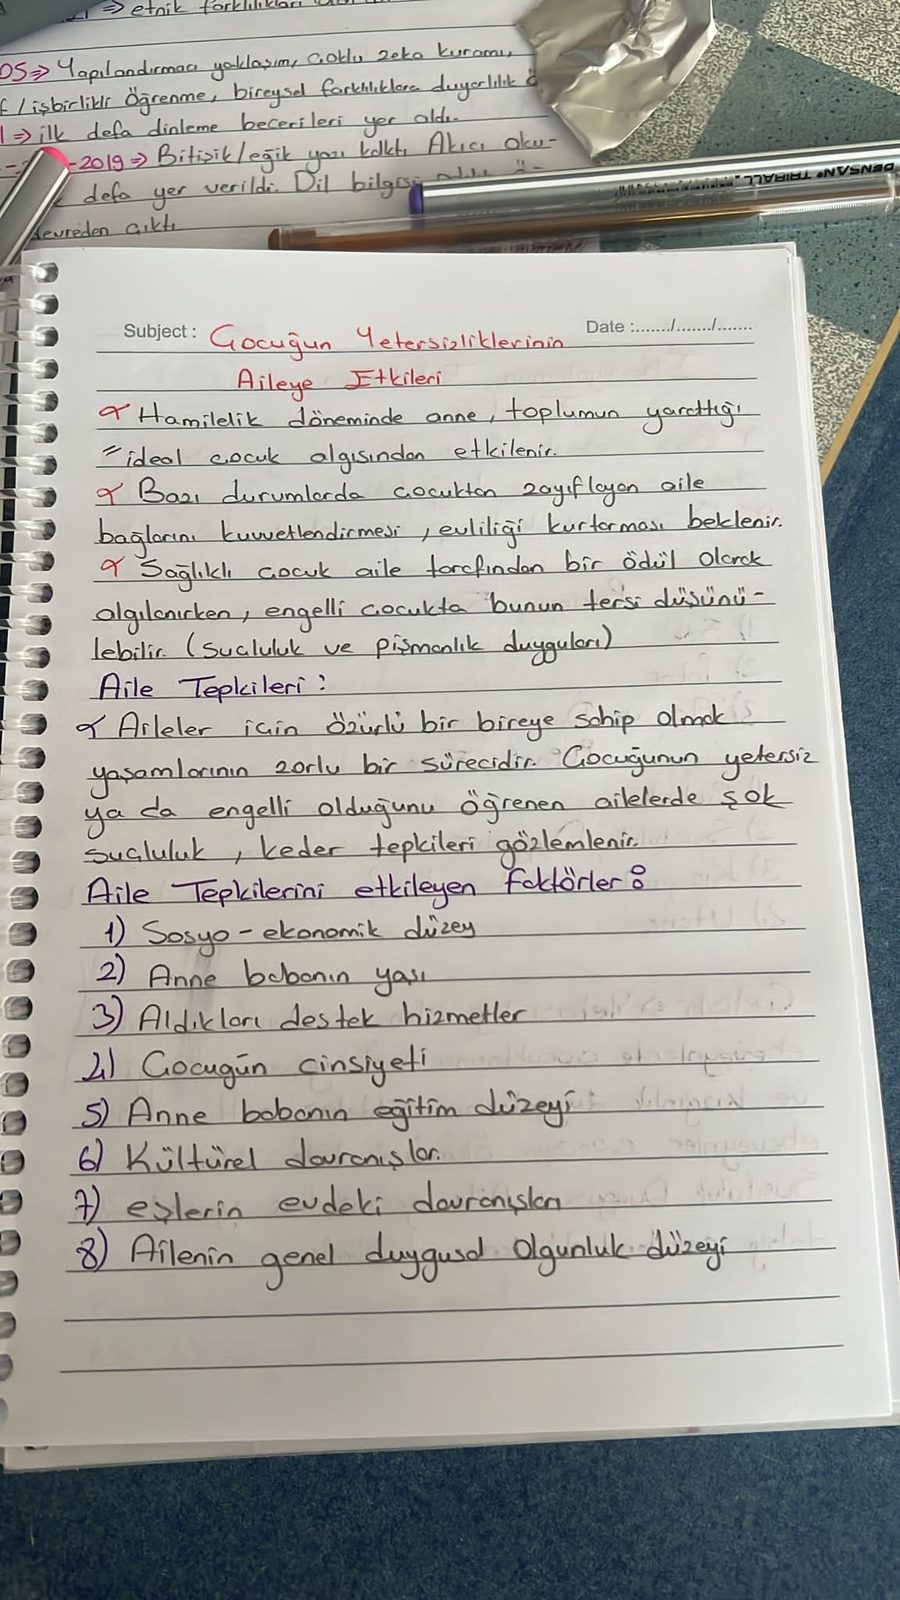 ⇒ etnik farklılıkları
⇒ Yapılandırmacı yaklaşım, çoklu zeka kuramı,
/ işbirlikli öğrenme, bireysel farklılıklara duyarlılık
⇒ ilk defa dinleme becerileri yer aldı.
-2019 ⇒ Bitişik/eğik yazı kalktı Akıcı oku-
defa yer verildi. Dil bilgisi
devreden çıktı
DENSAN® TRIBALL
Subject : Çocuğun Yetersizliklerinin Date :......./......./.......
Aileye Etkileri
Hamilelik döneminde anne, toplumun yarattığı
"ideal çocuk algısından etkilenir.
Bazı durumlarda çocuktan zayıflayan aile
bağlarını kuvvetlendirmesi, evliliği kurtarması beklenir.
Sağlıklı çocuk aile tarafından bir ödül olarak
algılanırken, engelli çocukta bunun tersi düşünü-
lebilir. (suçluluk ve pişmanlık duyguları)
Aile Tepkileri :
Aileler için özürlü bir bireye sahip olmak
yaşamlarının zorlu bir sürecidir. Çocuğunun yetersiz
ya da engelli olduğunu öğrenen ailelerde şok
suçluluk, keder tepkileri gözlemlenir.
Aile Tepkilerini etkileyen faktörler :
1) Sosyo-ekonomik düzey
2) Anne babanın yaşı
3) Aldıkları destek hizmetler
4) Çocugün cinsiyeti
5) Anne babanın eğitim düzeyi
6) Kültürel davranışlar.
7) eşlerin evdeki davranışları
8) Ailenin genel duygusal Olgunluk düzeyi